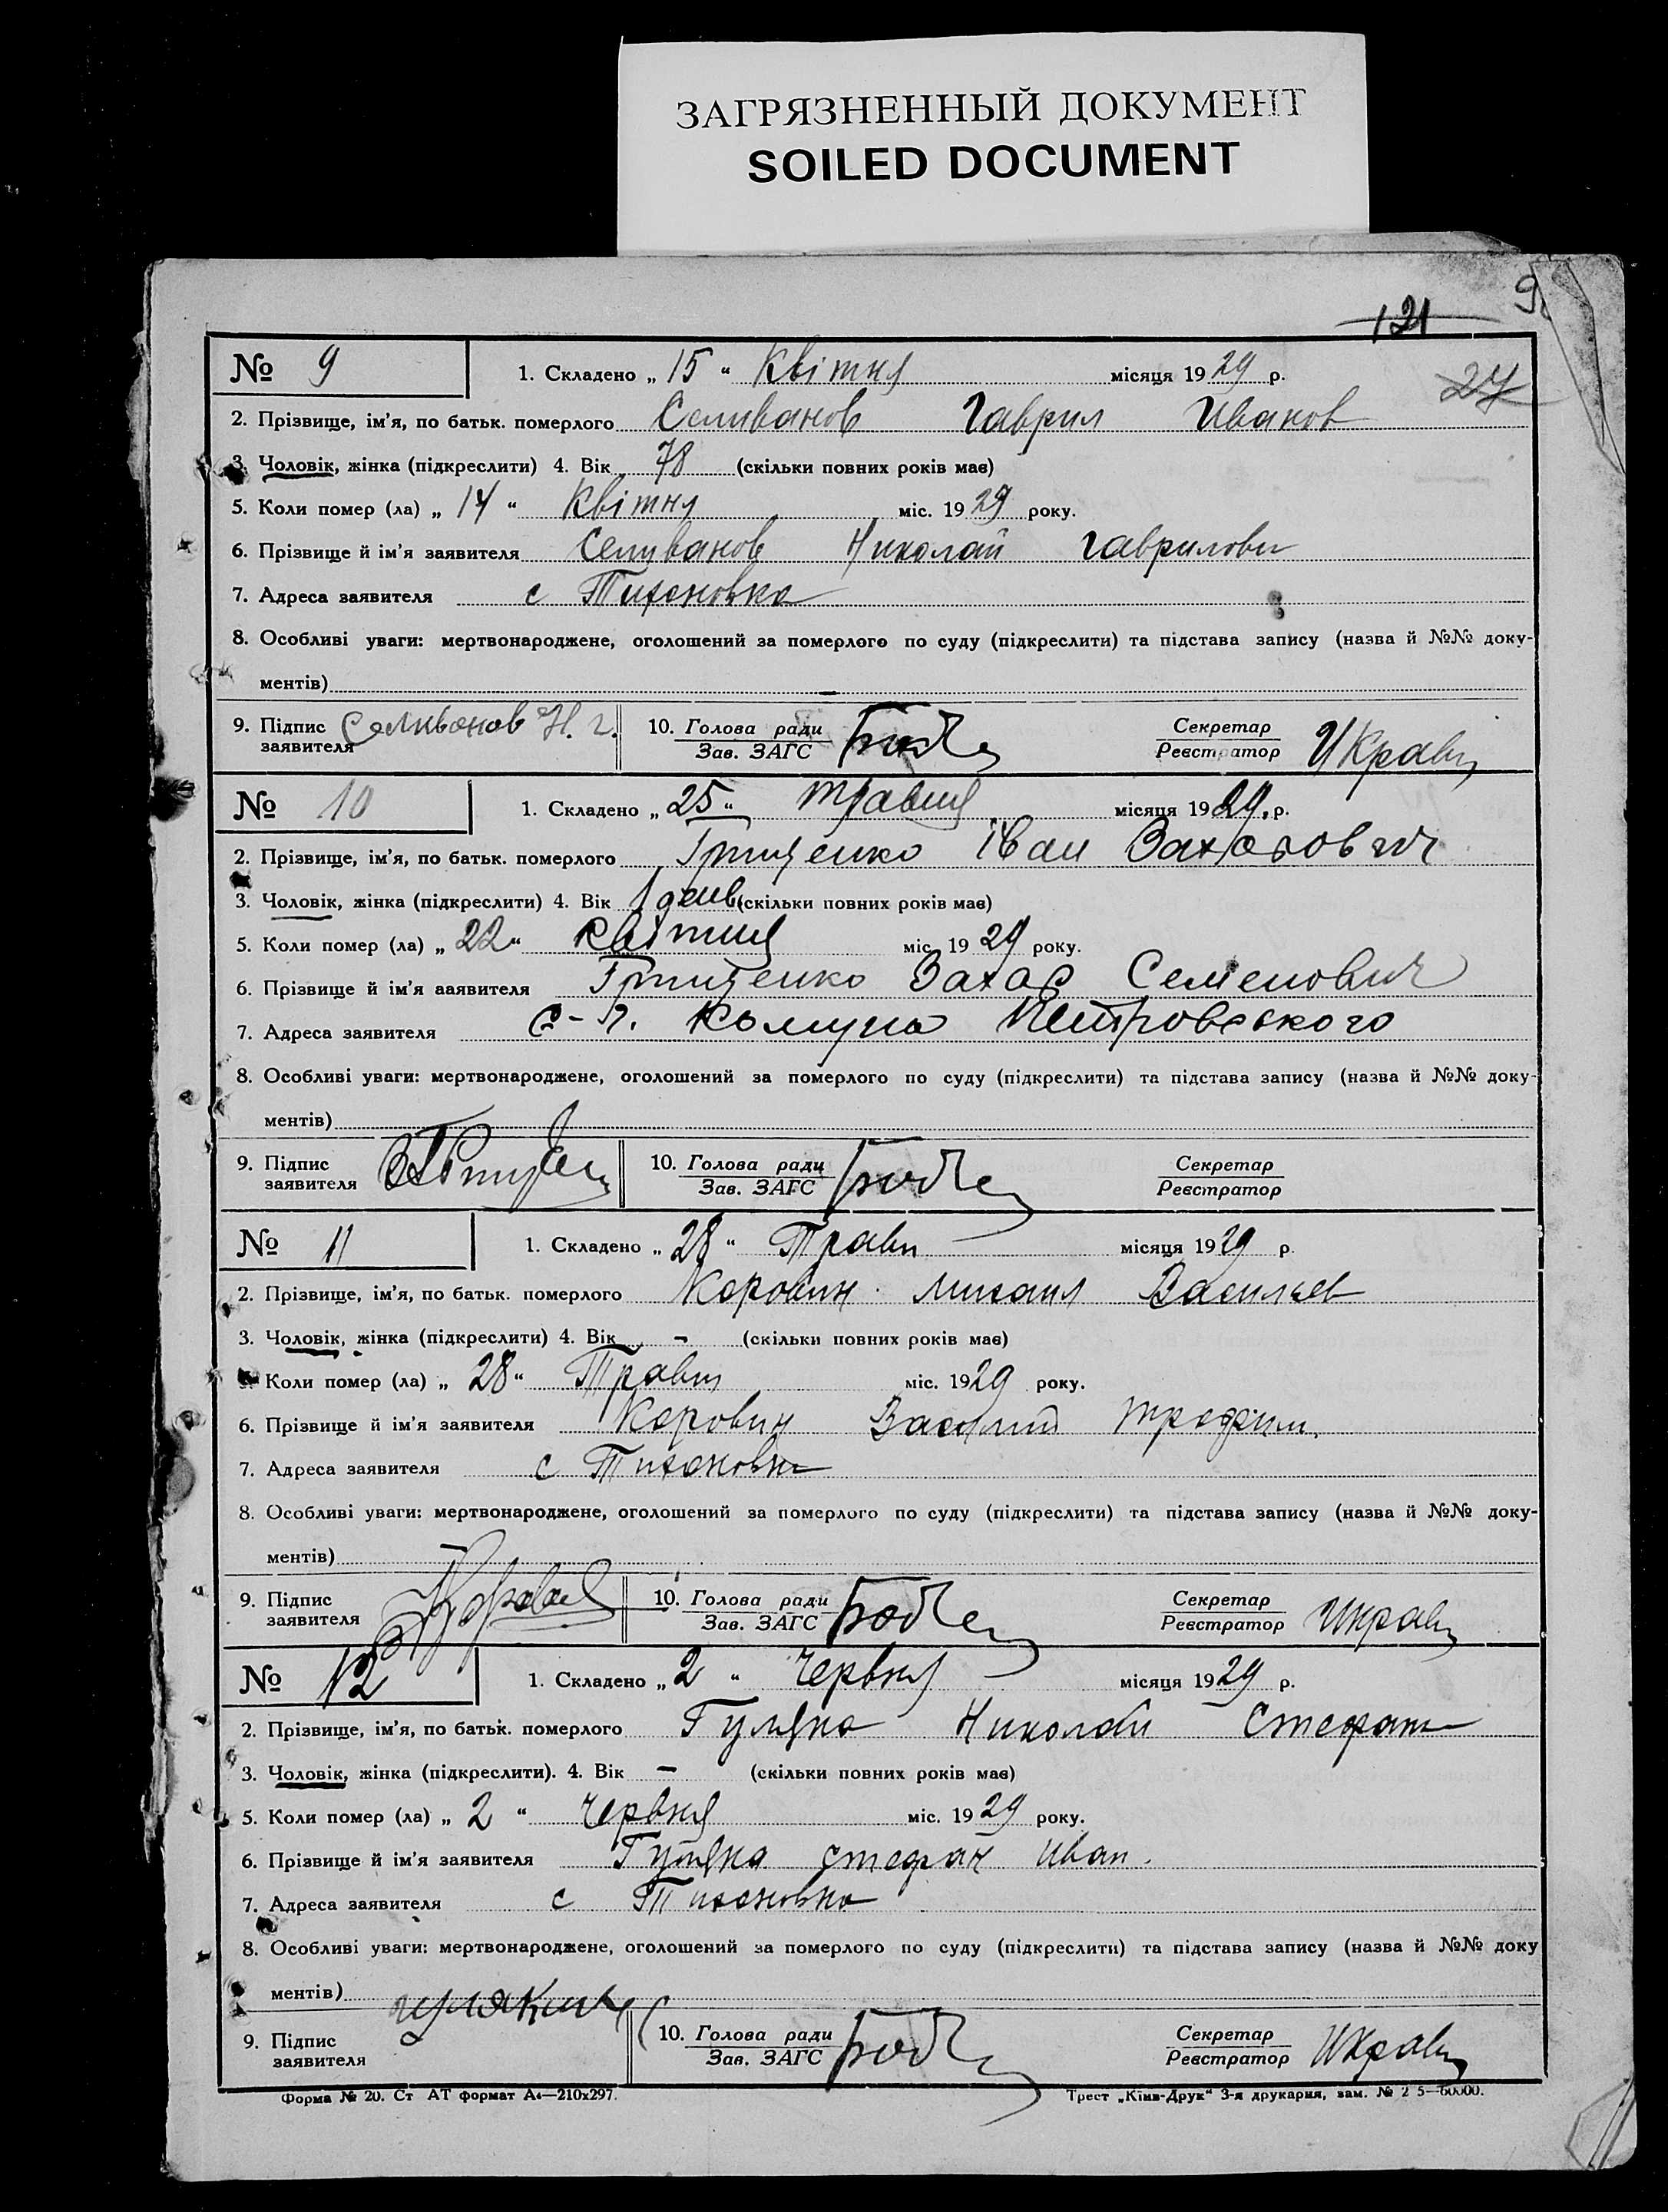 ЗАГРЯЗНЕННЫЙ ДОКУМЕНТ
SOILED DOCUMENT
121
27
№ 9 1. Складено „ 15 “ Квітня місяця 1929 р.
2. Прізвище, ім'я, по батьк. померлого Селиванов Гаврил Иванов
3. Чоловік, жінка (підкреслити) 4. Вік 78 (скільки повних років має)
5. Коли помер (ла) „ 14 “ Квітня міс. 1929 року.
6. Прізвище й ім'я заявителя Селиванов Николай Гаврилови
7. Адреса заявителя с Тихоновка
8. Особливі уваги: мертвонароджене, оголошений за померлого по суду (підкреслити) та підстава запису (назва й №№ доку-
ментів)
9. Підпис заявителя Селиванов Н. Г. 10. Голова ради Зав. ЗАГС Секретар Реєстратор ИКравц
№ 10 1. Складено „ 25 “ травня місяця 1929. р.
2. Прізвище, ім'я, по батьк. померлого Грищенко Іван Захарович
3. Чоловік, жінка (підкреслити) 4. Вік 1 день (скільки повних років має)
5. Коли помер (ла) „ 22 “ квітня міс. 1929 року.
6. Прізвище й ім'я заявителя Грищенко Захар Семенович
7. Адреса заявителя Комуна Петровського
8. Особливі уваги: мертвонароджене, оголошений за померлого по суду (підкреслити) та підстава запису (назва й №№ доку-
ментів)
9. Підпис заявителя 10. Голова ради Зав. ЗАГС Секретар Реєстратор
№ 11 1. Складено „ 28 “ Травн місяця 1929 р.
2. Прізвище, ім'я, по батьк. померлого Коровин Михаил Васильев
3. Чоловік, жінка (підкреслити) 4. Вік - (скільки повних років має)
5. Коли помер (ла) „ 28 “ Травн міс. 1929 року.
6. Прізвище й ім'я заявителя Коровин Василий Трофим.
7. Адреса заявителя с Тихоновка
8. Особливі уваги: мертвонароджене, оголошений за померлого по суду (підкреслити) та підстава запису (назва й №№ доку-
ментів)
9. Підпис заявителя 10. Голова ради Зав. ЗАГС Секретар Реєстратор ИКравц
№ 12 1. Складено „ 2 “ Червня місяця 1929 р.
2. Прізвище, ім'я, по батьк. померлого Гуляка Николай Стефан
3. Чоловік, жінка (підкреслити). 4. Вік - (скільки повних років має)
5. Коли помер (ла) „ 2 “ Червня міс. 1929 року.
6. Прізвище й ім'я заявителя Гуляка Стефан Иван.
7. Адреса заявителя с Тихоновка
8. Особливі уваги: мертвонароджене, оголошений за померлого по суду (підкреслити) та підстава запису (назва й №№ доку
ментів)
9. Підпис заявителя 10. Голова ради Зав. ЗАГС Секретар Реєстратор ИКравц
Форма № 20. Ст АТ формат А4—210х297. Трест „Київ-Друк“ 3-я друкарня, зам.